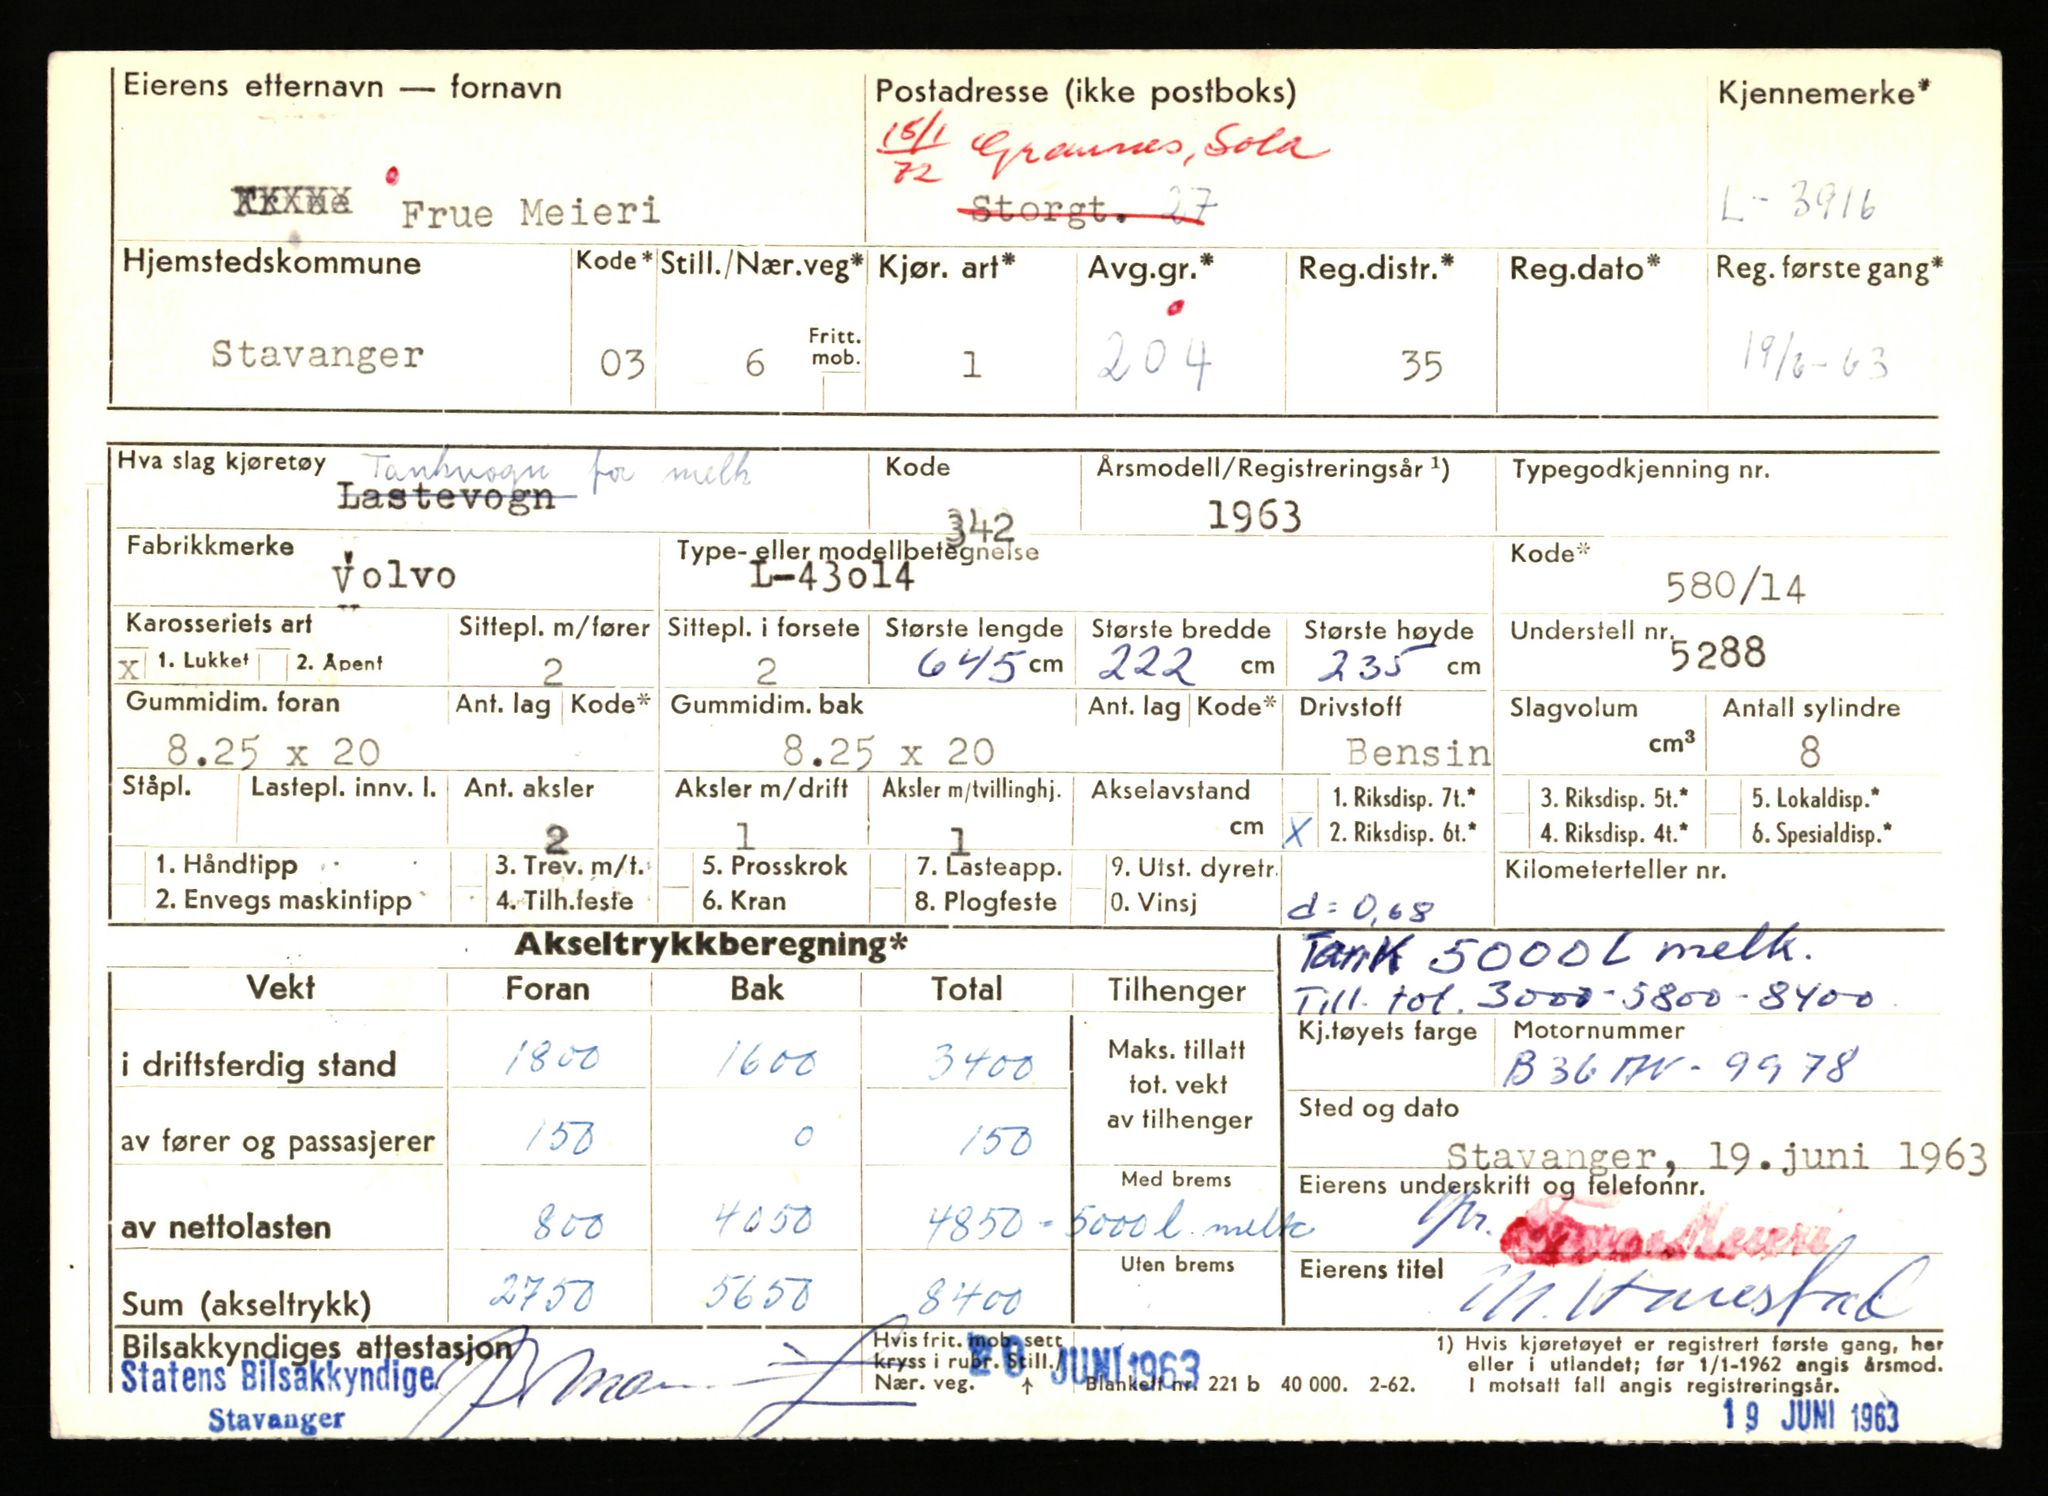 Eierens etternavn — fornavn
Postadresse (ikke postboks)
Kjennemerke*
15/1 72 Grannes, Sola
Frue Meieri
Storgt. 27
L-3916
Hjemstedskommune
Kode*
Still./Nær.veg*
Kjør. art*
Avg.gr.*
Reg.distr.*
Reg.dato*
Reg. første gang*
Stavanger
03
6
Fritt. mob.
1
204
35
19/6-63
Hva slag kjøretøy
Tankvogn for melk
Lastevogn
Kode
342
Årsmodell/Registreringsår ¹)
1963
Typegodkjenning nr.
Fabrikkmerke
Volvo
Type- eller modellbetegnelse
L-43o14
Kode*
580/14
Karosseriets art
x 1. Lukket 2. Åpent
Sittepl. m/fører
2
Sittepl. i forsete
2
Største lengde
645 cm
Største bredde
222 cm
Største høyde
235 cm
Understell nr.
5288
Gummidim. foran
8.25 x 20
Ant. lag
Kode*
Gummidim. bak
8.25 x 20
Ant. lag
Kode*
Drivstoff
Bensin
Slagvolum
cm³
Antall sylindre
8
Ståpl.
Lastepl. innv. l.
Ant. aksler
2
Aksler m/drift
1
Aksler m/tvillinghj.
1
Akselavstand
cm
1. Riksdisp. 7t.*
X 2. Riksdisp. 6t.*
3. Riksdisp. 5t.*
4. Riksdisp. 4t.*
5. Lokaldisp.*
6. Spesialdisp.*
1. Håndtipp
2. Envegs maskintipp
3. Trev. m/t.
4. Tilh.feste
5. Prosskrok
6. Kran
7. Lasteapp.
8. Plogfeste
9. Utst. dyretr.
0. Vinsj
d = 0,68
Kilometerteller nr.
Akseltrykkberegning*
Tank 5000 L melk.
Till. tot. 3000-5800-8400
Vekt
Foran
Bak
Total
Tilhenger
Kj.tøyets farge
Motornummer
B36AV-9978
i driftsferdig stand
1800
1600
3400
Maks. tillatt
tot. vekt
av tilhenger
Sted og dato
Stavanger, 19.juni 1963
av fører og passasjerer
150
0
150
Med brems
Eierens underskrift og telefonnr.
av nettolasten
800
4050
4850 - 5000 l. melk
pr. Frue Meieri
Uten brems
Eierens titel
Sum (akseltrykk)
2750
5650
8400
Bilsakkyndiges attestasjon
Statens Bilsakkyndige
Stavanger
Hvis frit. mob. sett
kryss i rubr. Still./
Nær. veg. ↑
20 JUNI 1963
Blankett nr. 221 b 40 000. 2-62.
1) Hvis kjøretøyet er registrert første gang, her
eller i utlandet; før 1/1-1962 angis årsmod.
I motsatt fall angis registreringsår.
19 JUNI 1963